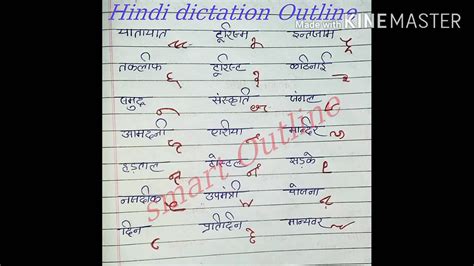 Hindi dictation Outline
Made with KINEMASTER
यातायात टूरिज्म इन्तजाम
तकलीफ टूरिस्ट कठिनाई
समुद्र संस्कृति जंगल
आमदनी एरिया मन्दिर
हड़ताल होस्टल सड़के
नजदीक उपमंत्री योजना
दिन प्रतिदिन मान्यवर
smart Outline